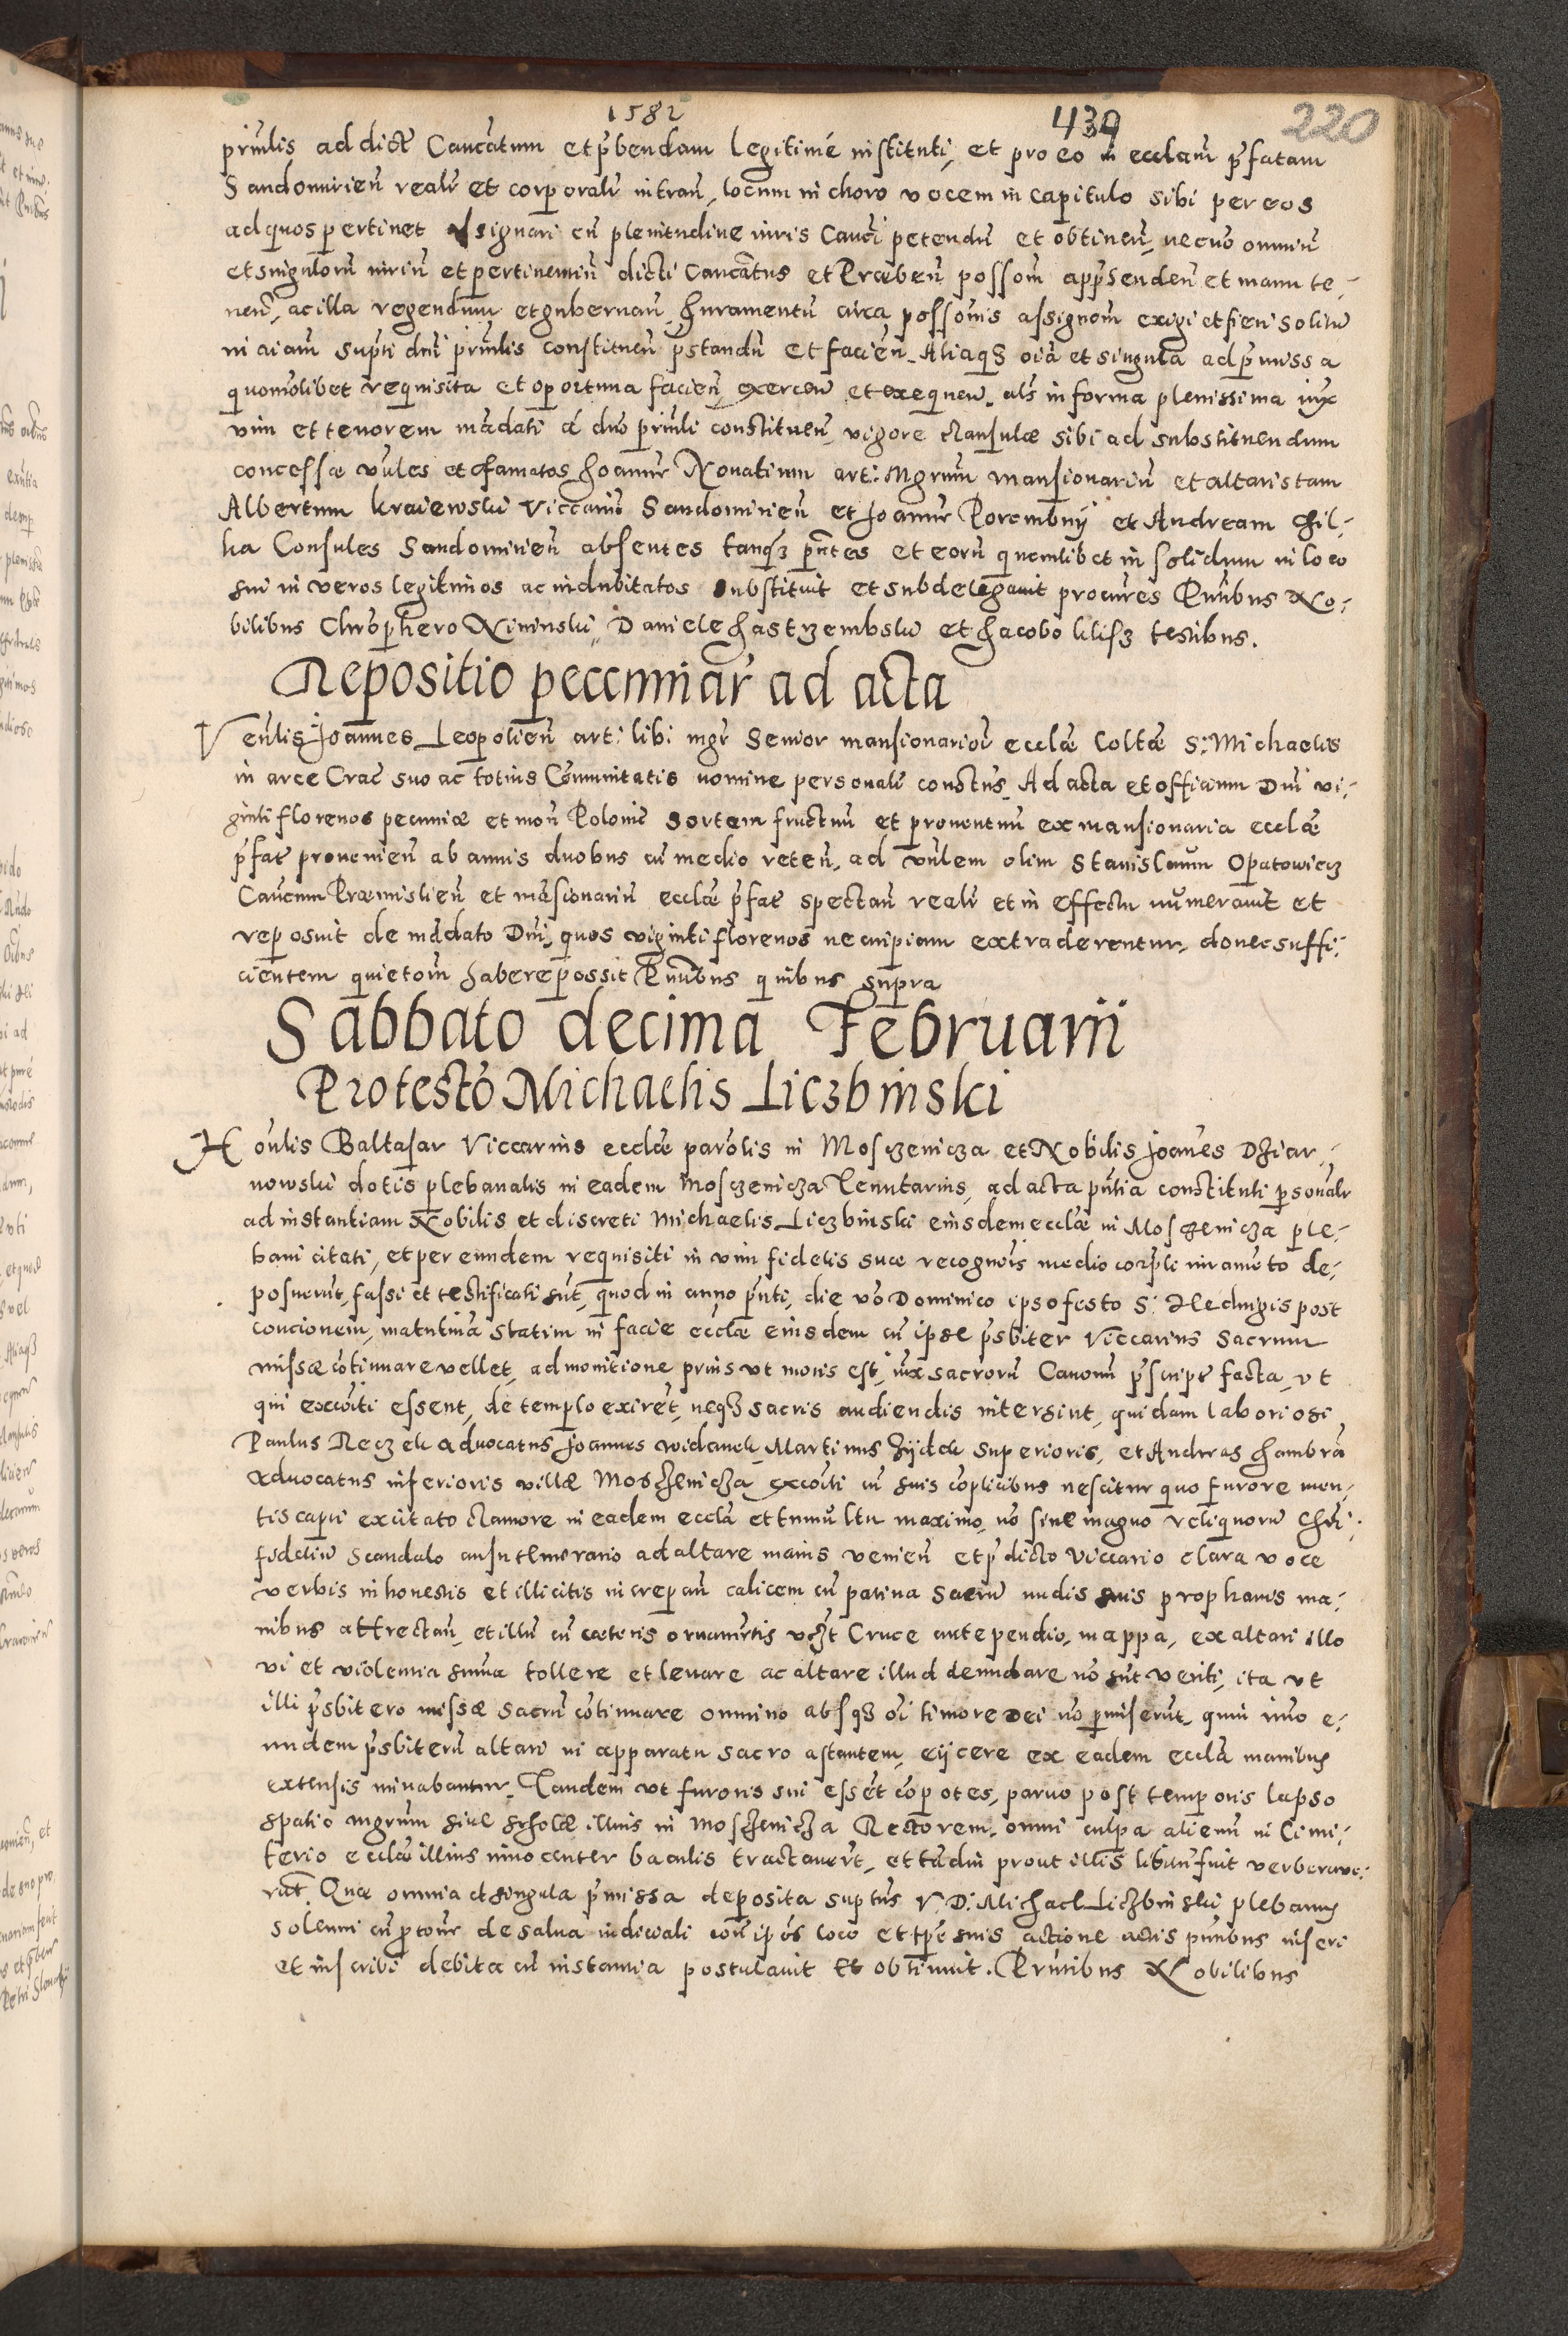 1582 439 220
prinlis ad dict Canċatum et p̄bendam legitimé instituti, et pro eo in ecclam p̄fatam
Sandomirień realr et corporalr intrań, locum in choro vocem in capitulo sibi per eos
ad quos pertinet assignari cū plenitudine iuris Canći petendū et obtineń, necnō omniū
et singulorū iuriū et pertinentiū dicti Canćatus et Præbeń possom̄ appr̄endeń et manu te,
neń, ac illa regendum et gubernań, Juramentū circa possom̄is assignom̄ exigi et fieri solitū
in aīam supti dnī prinlis constitueń p̄standū et facień. Aliaqȝ oīa et singula ad p̄missa
quomolibet requisita et oportuna facień exerceń et exequeń. als in forma plenissima iux
vim et tenorem mādati á dno prinli constitueń, vigore clausulæ sibi ad substituendum
concessæ vn̄les et famatos Joannē Nouatium art: Mgrum mansionariū et altaristam
Albertum kraiewski Viccariū Sandomirień et Joannē Porembnÿ et Andream Gil,
ka Consules Sandomirień absentes tanqȝ p̄ntes et eorū quemlibet in solidum in loco
sui in veros legitimos ac indubitatos substituit et subdelegauit procūres Pn̄tibus No,
bilibus Chrōphero Nininski, Daniele Jastrzembski et Jacobo klisz testibus.
Repositio peccuniar̄ ad acta
Venlis Joannes Leopolień art: libi mgr̄ Senior mansionarior̄ ecclæ Coltæ S: Michaelis
in arce Crać suo ac totius Cōmunitatis nomine personalr constus, Ad acta et officium Dnī vi,
ginti florenos pecuniæ et moń Polonić sortem fructuū et prouentuū ex mansionaria ecclæ
p̄fatæ prouenień ab annis duobus cū medio reteń, ad vn̄lem olim Stanislaum Opatowicz
Canćum Præmislień et māsionariū ecclæ p̄fatæ spectań realr et in effectu nūmerauit et
reposuit de mādato Dnī, quos viginti florenos ne cuipiam extraderentur, donec suffi,
cientem quietom̄ habere possit Pn̄tibus quibus supra
Sabbato decima Februarii
Protestō Michaelis Liczbinski
Honlis Baltasar Viccarius ecclæ parōlis in Mosczenicza et Nobilis Joānes Dziar,
nowski dotis plebanalis in eadem Mosczenicza Tenutarius, ad acta pn̄tia constituti psonalr
ad instantiam Nobilis et discreti Michaelis Liczbinski eiusdem ecclæ in Mosczenicza ple,
bani citati, et per eundem requisiti in vim fidelis suæ recognōis medio corpli iuramēto de,
posuerūt, fassi et testificati sūt, quod in anno p̄nti, die vō Dominico ipso festo S: Hedwigis post
concionem, matutinā statim in facie ecclæ eiusdem cū ipse p̄sbiter Viccarius Sacrum
missæ cōtinuare vellet, admonitione prius vt moris est, iux sacrorū Canonū p̄script facta, vt
qui excōiti essent, de templo exirēt, neqȝ sacris audiendis intersint, quidam laboriosi
Paulus Reczek aduocatus Joannes widanek, Martinus Zÿdek superioris, et Andreas Jambrā
aduocatus inferioris villæ Mosczenicza excōiti cū suis cōplicibus nescitur quo furore men,
tis capti excitato clamore in eadem eccla et tumultu maximo, nō sine magno reliquorū Chri,
fideliū scandalo ausu temerario ad altare maius venień et p̄dicto Viccario clara voce
verbis inhonestis et illicitis increpań calicem cū patina sacrū nudis suis prophanis ma,
nibus attrectań, et illū cū cæteris ornamētis vczt Cruce antependio, mappa, ex altari illo
vi et violentia summa tollere et leuare ac altare illud denudare nō sūt veriti, ita vt
illi p̄sbitero missæ sacrū cōtinuare omnino absqȝ oī timore Dei nō pmiserūt, quin imo e,
undem p̄sbiterū altari in apparatu sacro astantem, eijcere ex eadem eccla manibus
extensis minabantur. Tandem vt furoris sui essēt cōpotes, paruo post temporis lapso
spatio mgrum siue scholæ illius in Mosczenicza Rectorem, omni culpa alienū in Cimi,
terio ecclæ illius innocenter baculis tractauerūt, et tādiu prout illis libitū fuit verberaue,
rūt. Quæ omnia et singula p̄missa deposita suptus V. D. Michael Liczbinski plebanus
solenni cū ptone de salua indicali coń ipōs loco et tpe suis actione actis pn̄tibus inseri
et inscribi debita cū instantia postulauit et obtinuit. Prn̄tibus Nobilibus